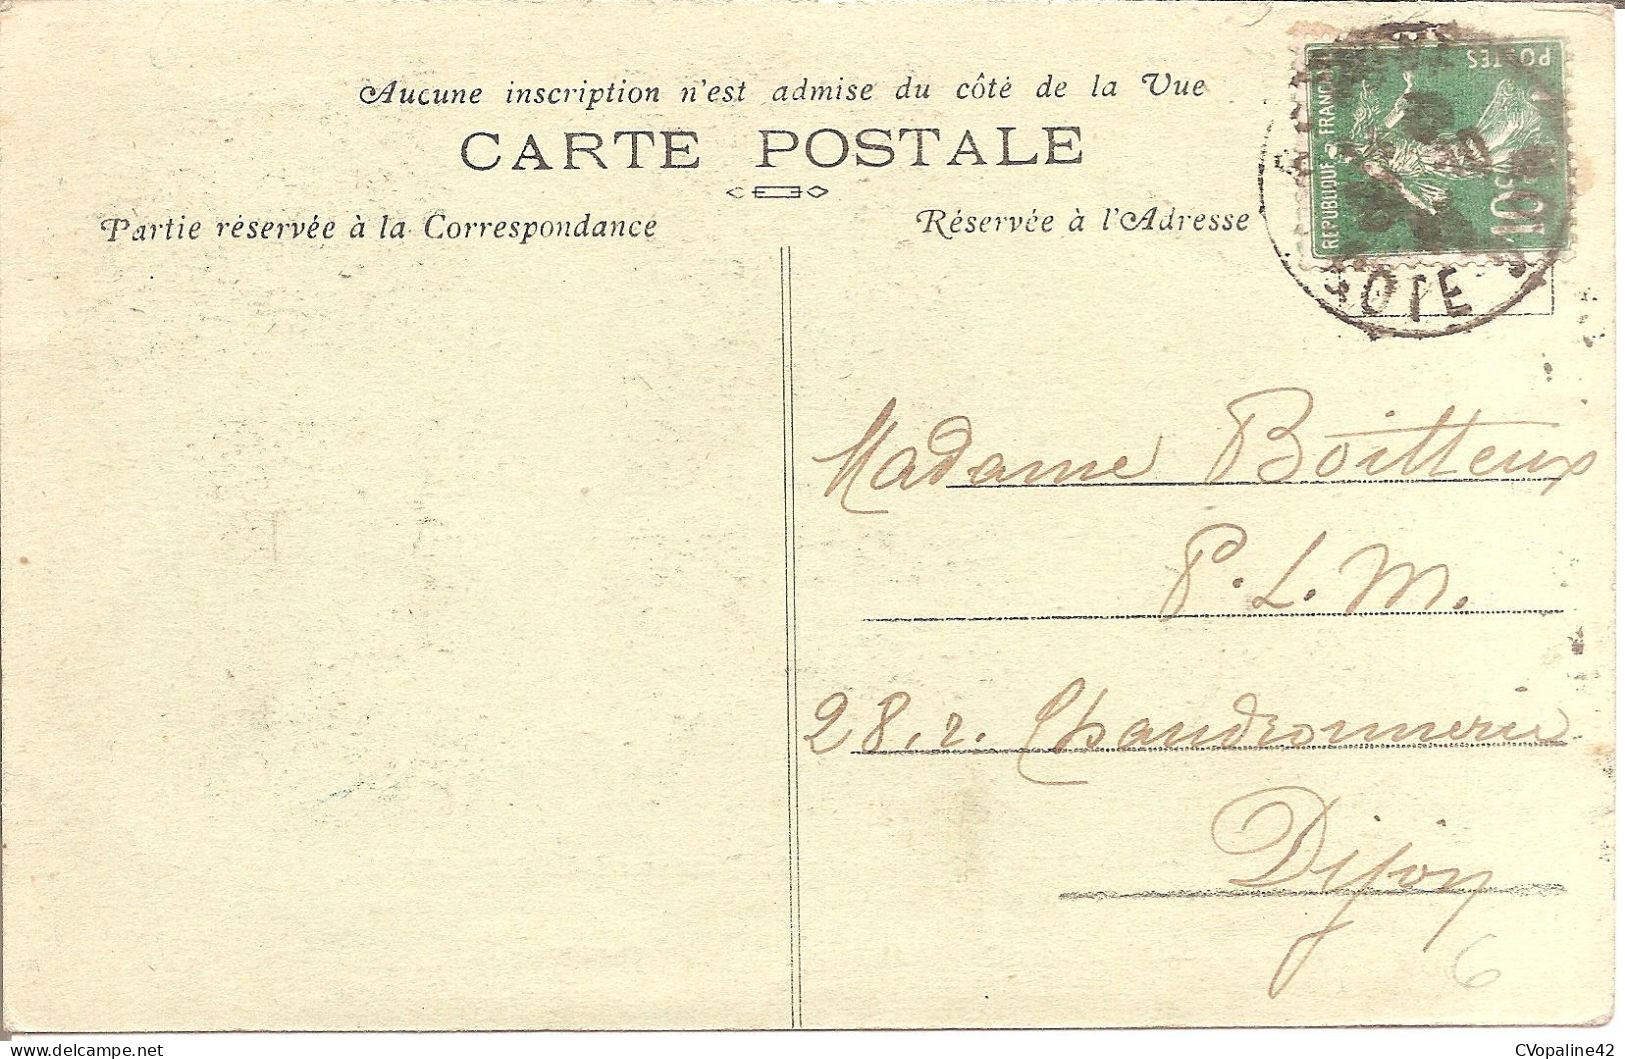 Aucune inscription n'est admise du côté de la Vue
CARTE POSTALE
Partie réservée à la Correspondance
Réservée à l'Adresse
REPUBLIQUE FRANÇAISE
POSTES
10c
OIE
Madame Boitteux
P. L. M.
28, r. Chaudronnerie
Dijon
6
delcampe.net
CVopaline42